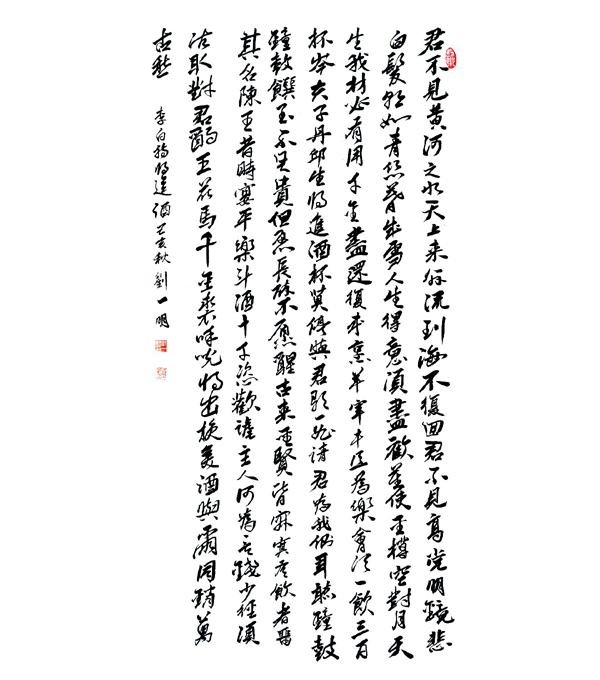 君不見黃河之水天上来奔流到海不復回君不見高堂明鏡悲
白髮朝如青絲暮成雪人生得意須盡歡莫使金樽空對月天
生我材必有用千金盡還復來烹羊宰牛且為樂會須一飲三百
杯岑夫子丹邱生將進酒杯莫停與君歌一曲請君為我側耳聽鐘鼓
鐘鼓饌玉不足貴但愿長醉不愿醒古来聖賢皆寂寞飲者留
其名陳王昔時宴平樂斗酒十千恣歡謔主人何為言錢少徑須
沽取對君酌五花馬千金裘呼兒將出換美酒與爾同銷萬
古愁 李白將進酒 己亥秋 劉一明